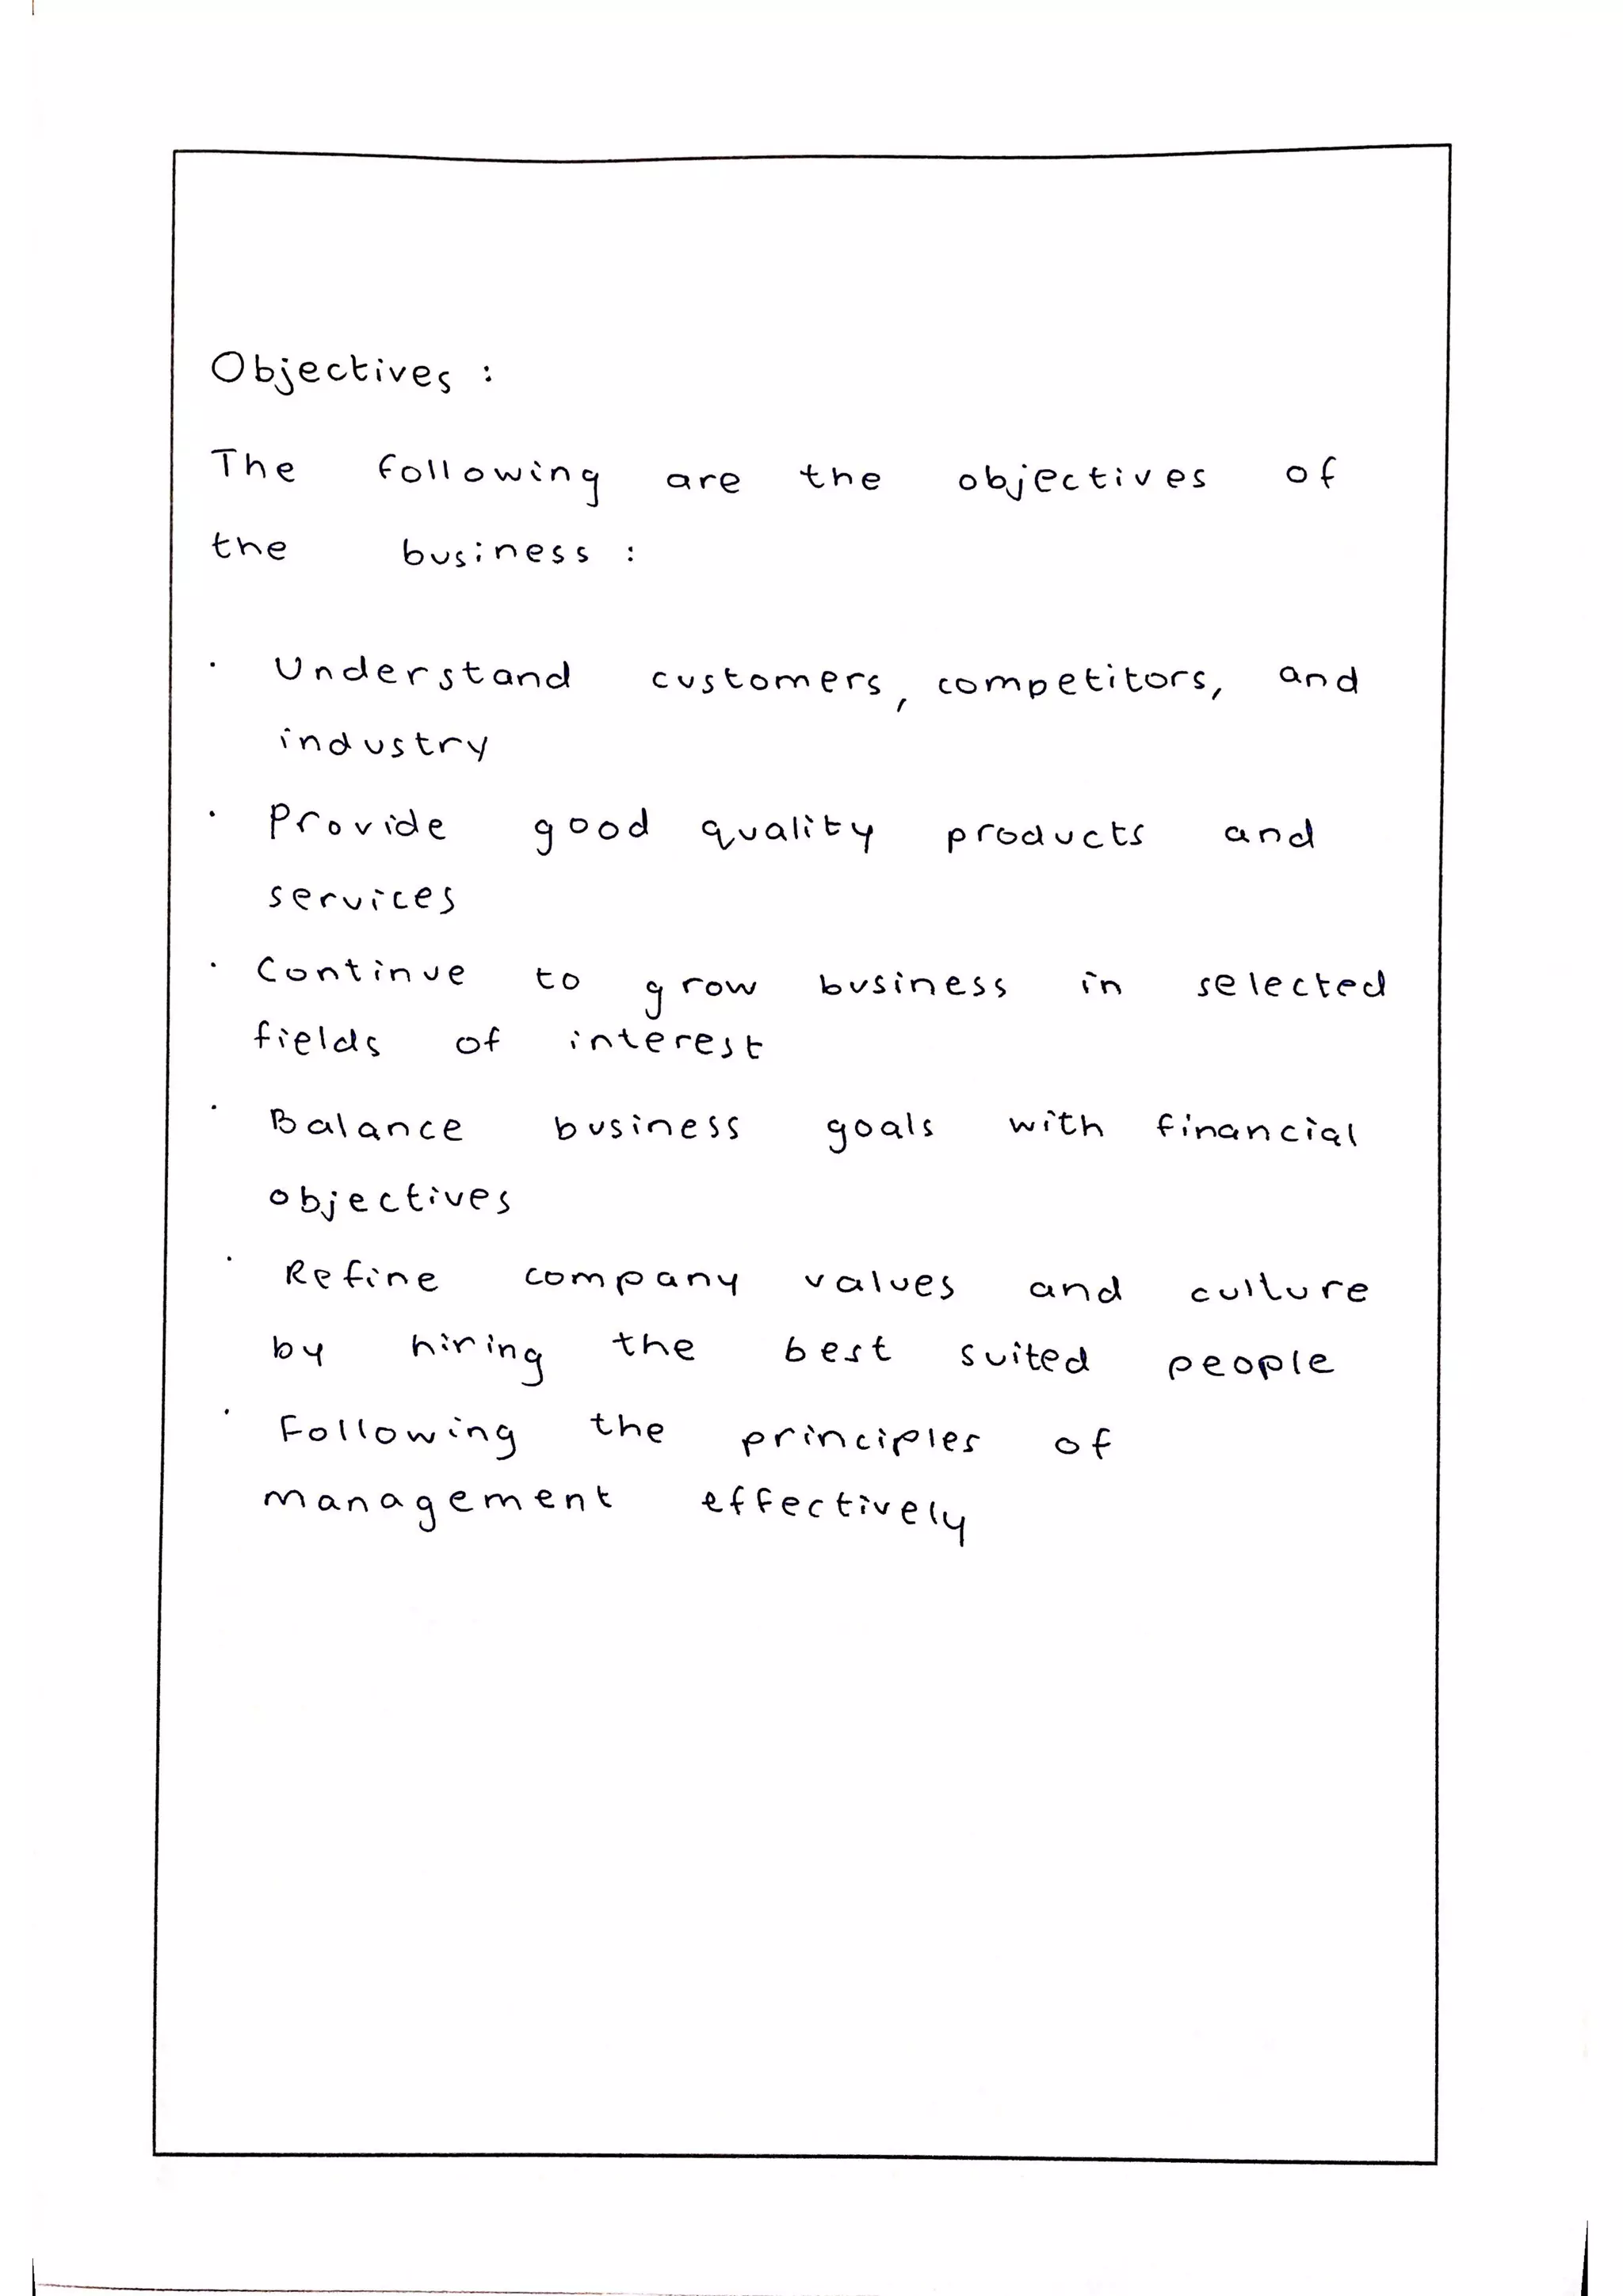 Objectives :
The following are the objectives of
the business :
· Understand customers, competitors, and
industry
· Provide good quality products and
services
· Continue to grow business in selected
fields of interest
· Balance business goals with financial
objectives
· Refine company values and culture
by hiring the best suited people
· Following the principles of
management effectively